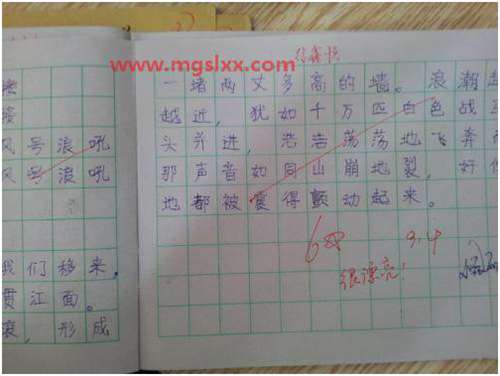 www.mgslxx.com
风号浪吼
风号浪吼
我们移来。
贯江面。
滚，形成
一堵两丈多高的墙。浪潮越
越近，犹如千万匹白色战
头并进，浩浩荡荡地飞奔
那声音如同山崩地裂，好
地都被震得颤动起来。
9.4
很漂亮！